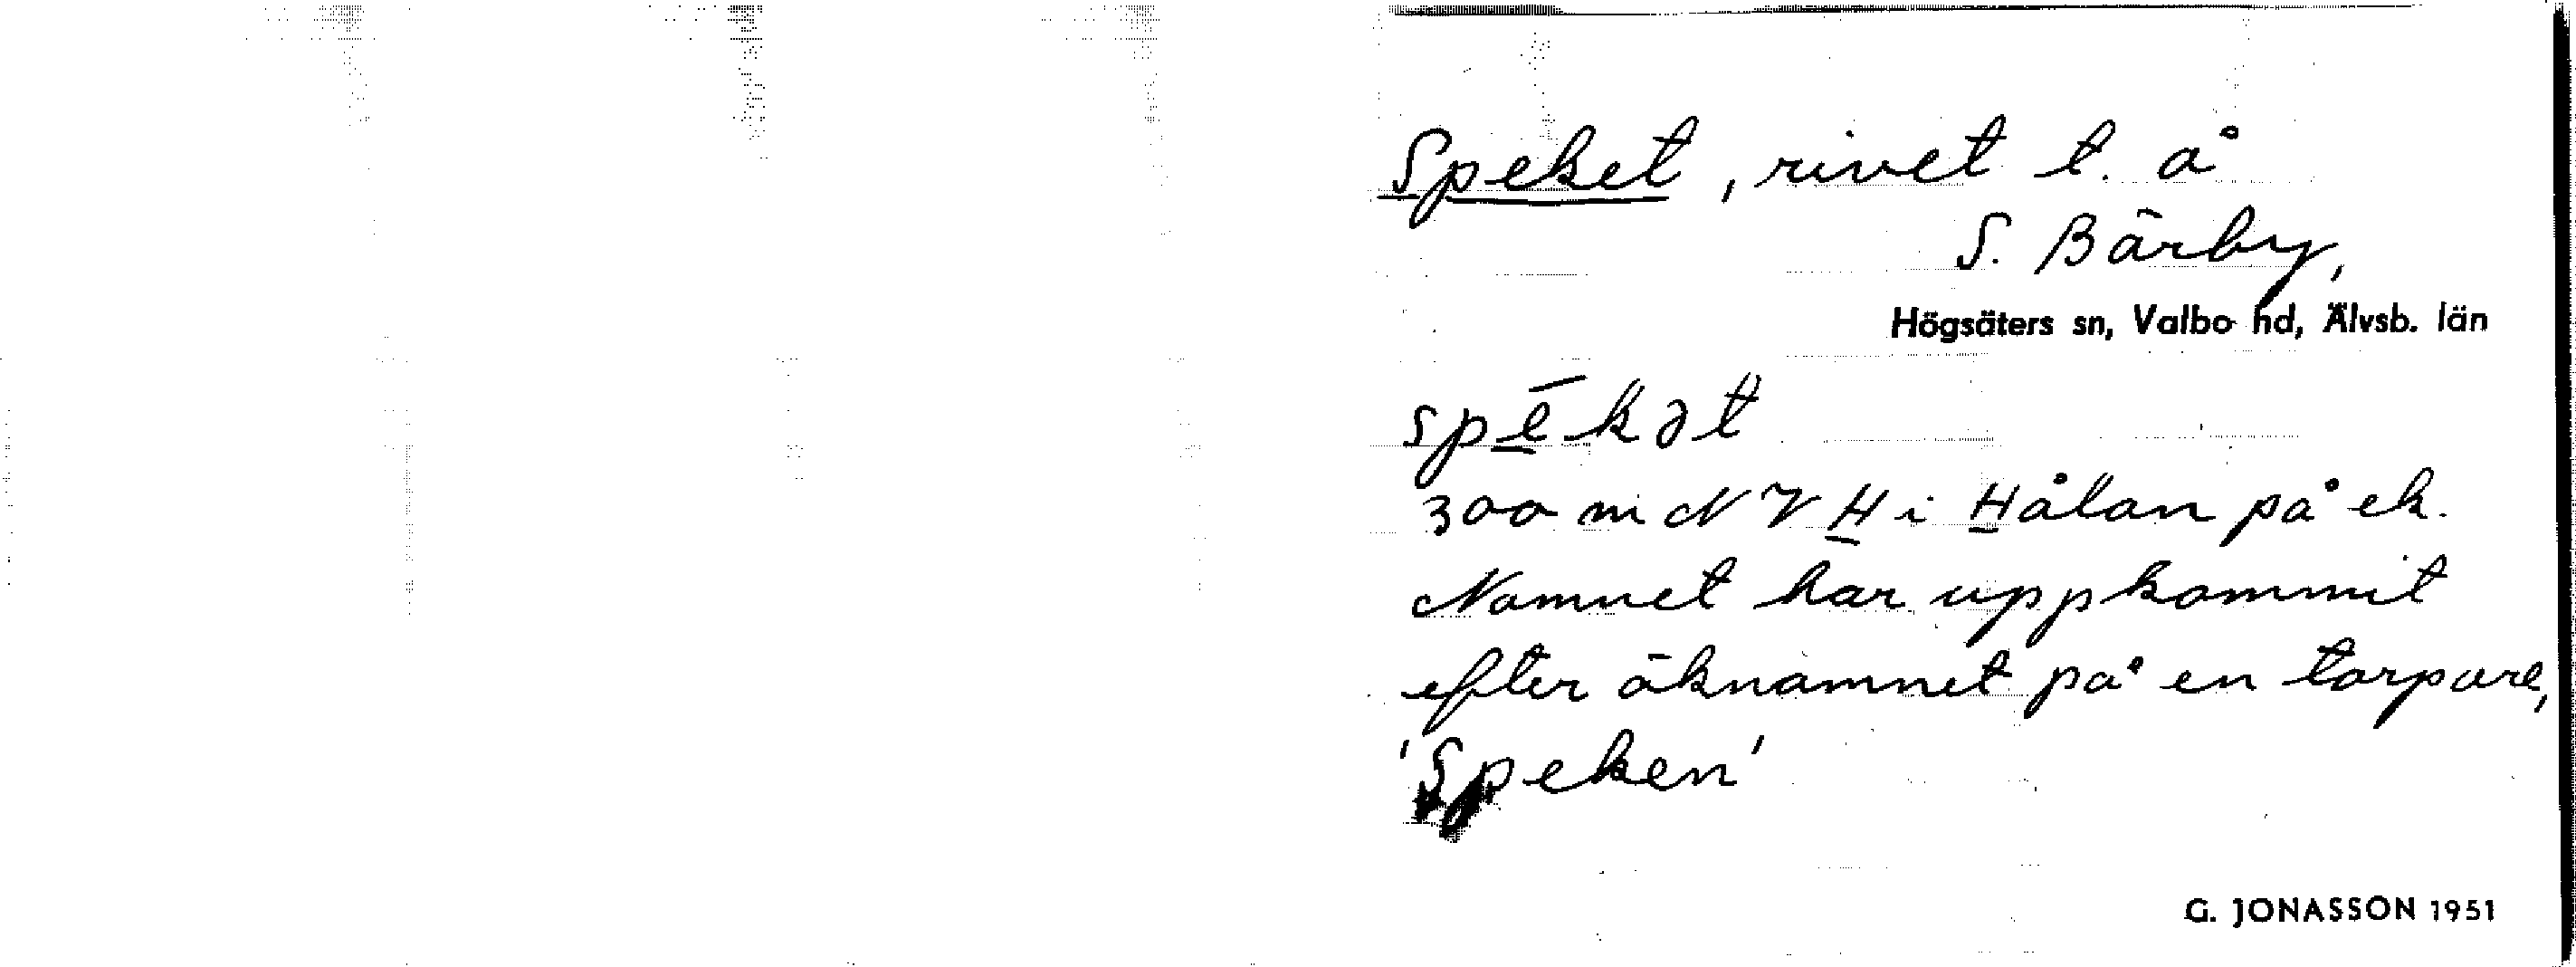 Speket, rivet t. å
S. Bärby,
Högsäters sn, Valbo hd, Älvsb. län
spēkət
300 m NV H i Hålan på ek.
Namnet har uppkommit
efter öknamnet på en torpare,
'Speken'
G. JONASSON 1951